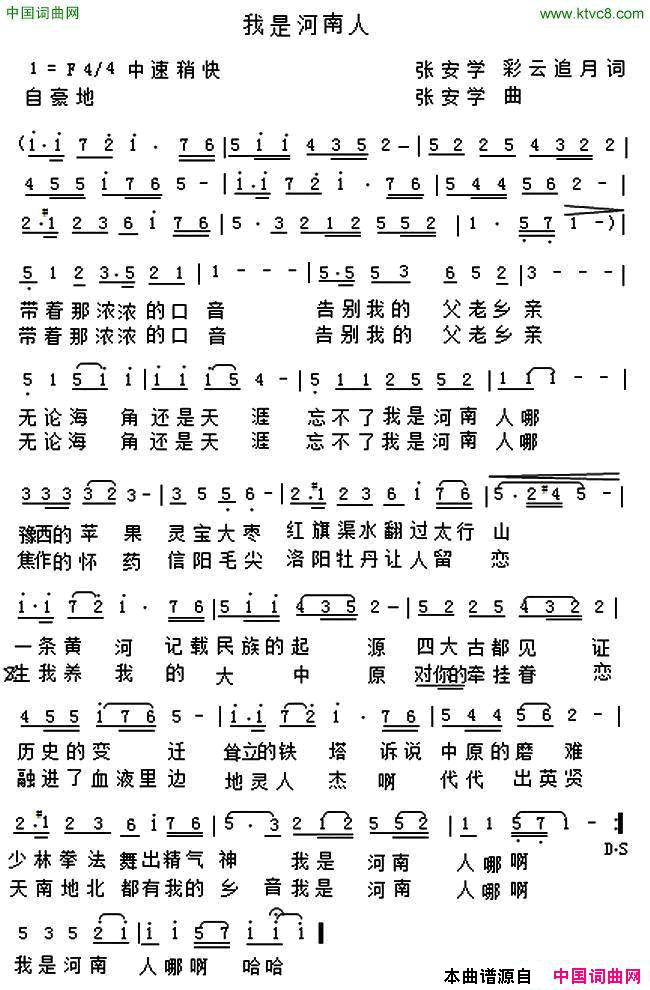 中国词曲网 www.ktvc8.com
我是河南人
1=F 4/4 中速稍快 张安学 彩云追月词
自豪地 张安学 曲
(i·i 7 2 i · 7 6 | 5 i i 4 3 5 2 – | 5 2 2 5 4 3 2 2 |
4 5 5 i 7 6 5 – | i·i 7 2 i · 7 6 | 5 4 4 5 6 2 – |
2·#1 2 3 6 i 7 6 | 5 · 3 2 1 2 5 5 2 | 1 · 5 7 1 –) |
5 1 2 3·5 2 1 | 1 – – – | 5·5 5 3 6 5 2 | 3 – – – |
带着那浓浓的口音 告别我的 父老乡亲
带着那浓浓的口音 告别我的 父老乡亲
5 1 5 i | i i i i 5 4 – | 5 1 1 2 5 5 2 | 1 1 1 – – |
无论海 角还是天 涯 忘不了我是河南 人哪
无论海 角还是天 涯 忘不了我是河南 人哪
3 3 3 3 2 3 – | 3 5 5 6 – | 2·#1 2 3 6 i 7 6 | 5·2 #4 5 – |
豫西的 苹 果 灵宝大枣 红旗渠水翻过太行山
焦作的 怀 药 信阳毛尖 洛阳牡丹让人留 恋
i·i 7 2 i · 7 6 | 5 i i 4 3 5 2 – | 5 2 2 5 4 3 2 2 |
一条黄 河 记载民族的起 源 四大古都见 证
生我养 我 的 大 中 原 对你的牵挂眷 恋
4 5 5 i 7 6 5 – | i·i 7 2 i · 7 6 | 5 4 4 5 6 2 – |
历史的变 迁 耸立的铁 塔 诉说 中原的磨 难
融进了血液里边 地灵人 杰 啊 代代 出英贤
2·#1 2 3 6 i 7 6 | 5 · 3 2 1 2 5 5 2 | 1 1 5 7 1 – :|
D·S
少林拳法 舞出精气 神 我 是 河南 人 哪啊
天南地北 都有我的 乡 音我 是 河南 人 哪啊
5 3 5 2 i | i i 5 7 i i i ‖
我是河南 人 哪啊 哈哈
本曲谱源自 中国词曲网